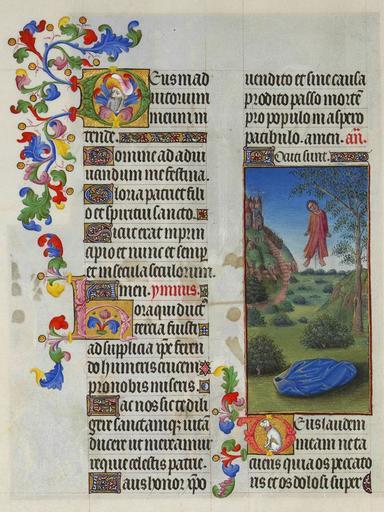 Deus in ad
iutorium
meum in
tende.
Domine ad adiu
uandum me festina.
Gloria patri et fili
o et spiritui sancto.
Sicut erat in prin
cipio et nunc et semp
et in secula seculorum.
Amen. ymnus.
Hora qui duct
tercia fuisti
ad supplicia xpe feren
do humeris crucem
pro nobis miseris.
Fac nos sic te dili
gere sanctamque uitã
ducere ut mereamur
requie celestis patrie.
Laus honor xpo
uendito et sine causa
prodito passo mortẽ
pro populo in aspero
patibulo. amen. añ.
Quia sunt.
Deus laudem
meam ne ta
cueris quia os peccato
ris et os dolosi super